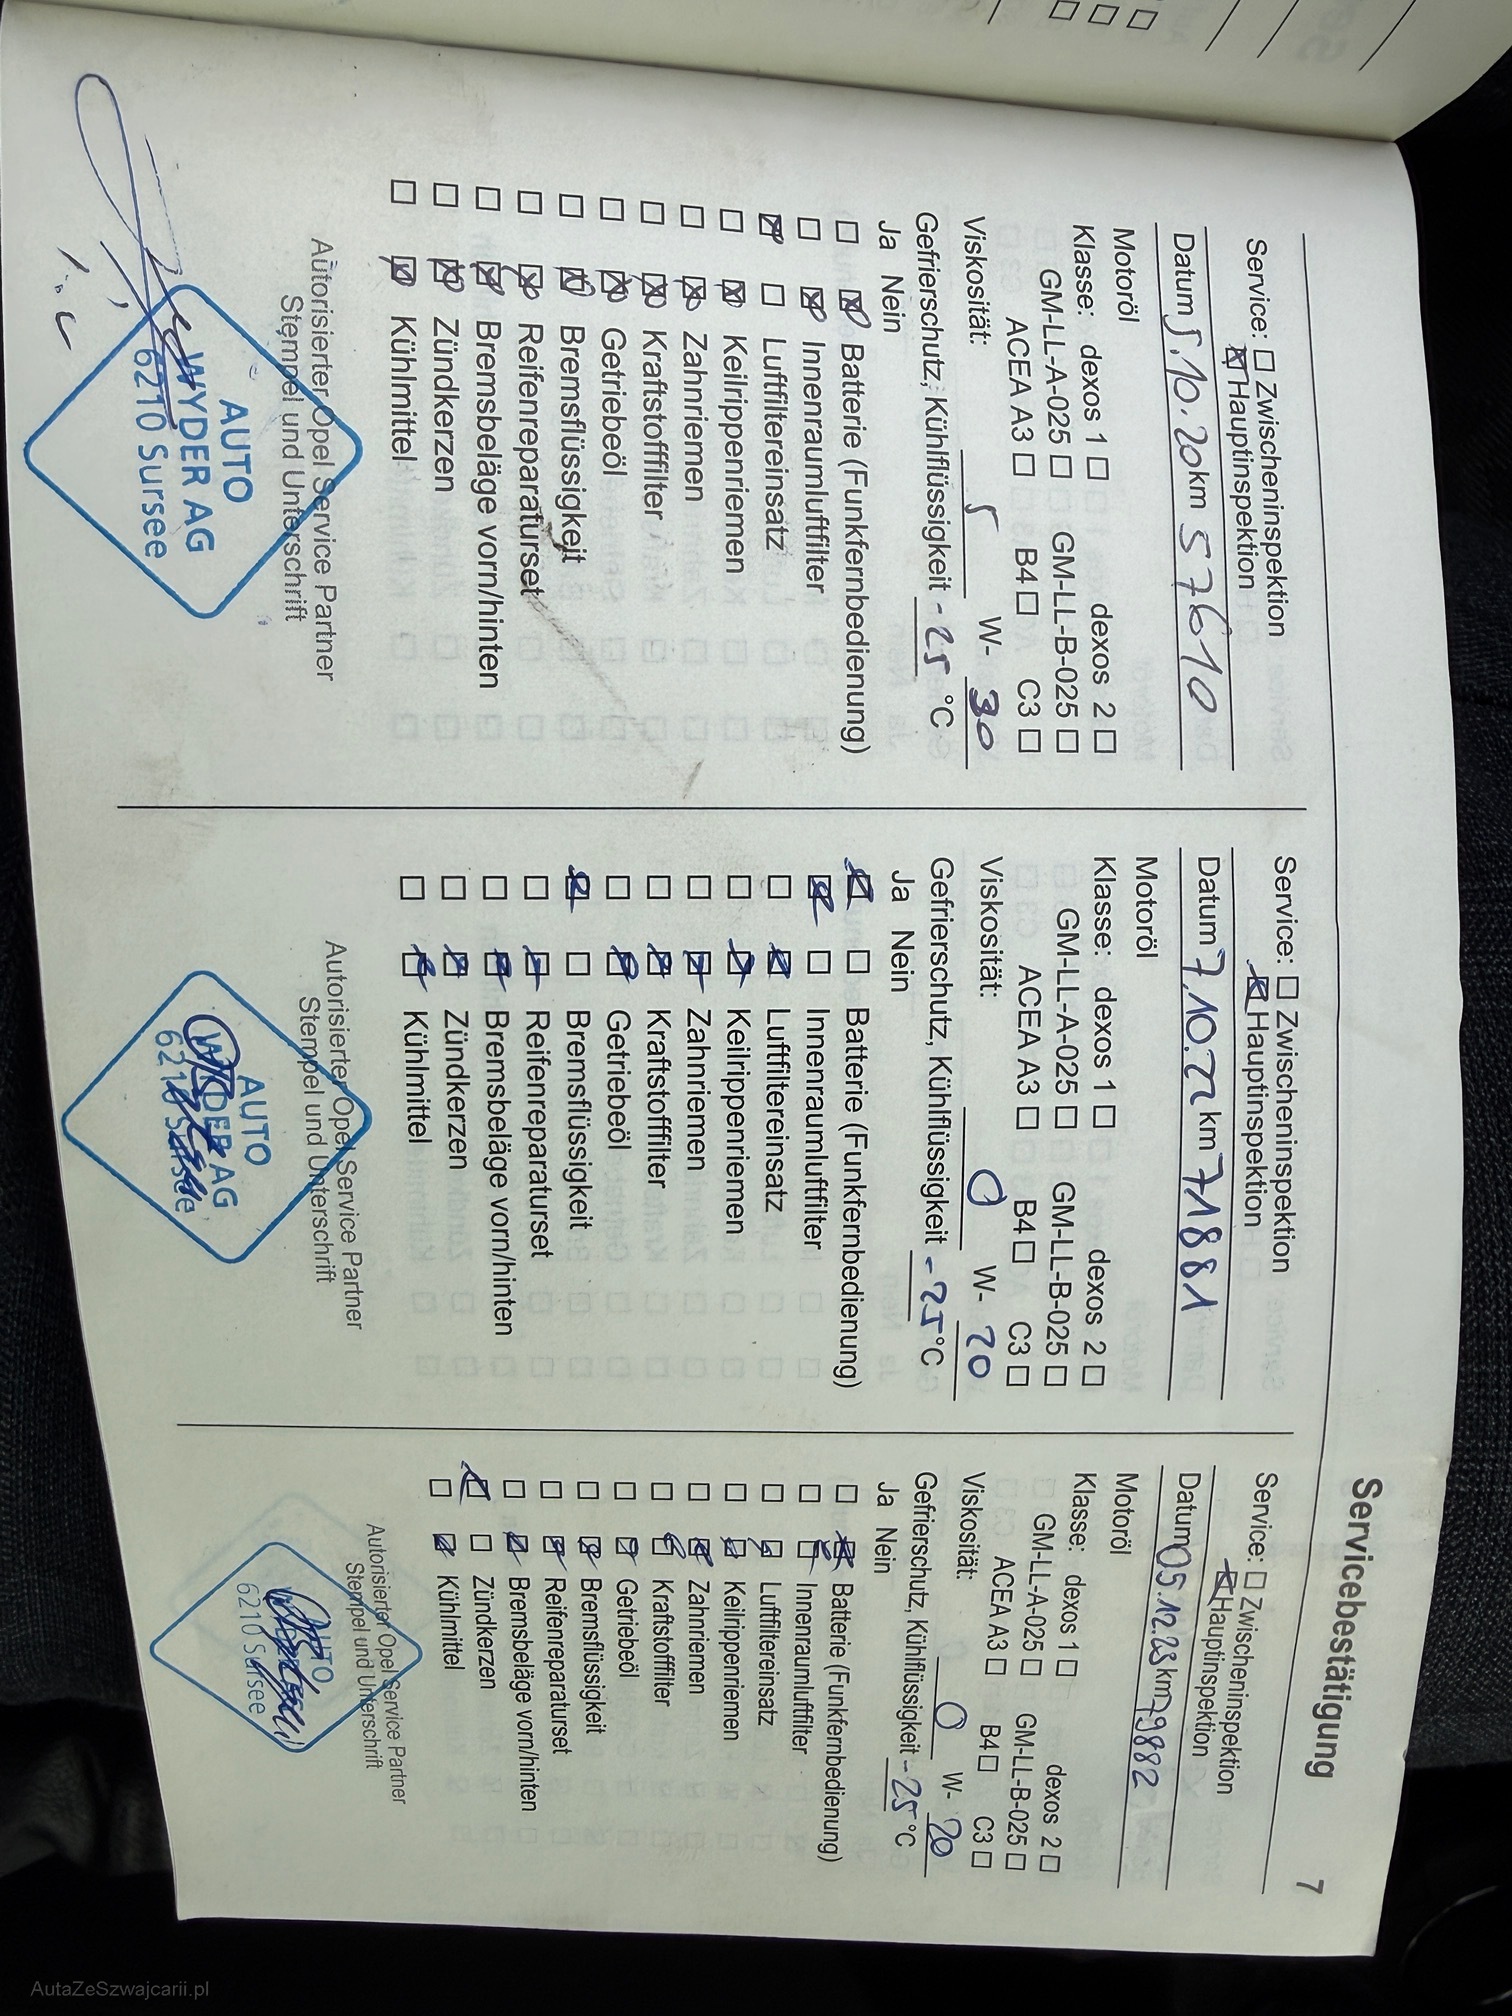 Servicebestätigung
7
Service: ☐ Zwischeninspektion
☒ Hauptinspektion
Datum 5.10.20 km 57610
Motoröl
Klasse: dexos 1 ☐ dexos 2 ☐
GM-LL-A-025 ☐ GM-LL-B-025 ☐
ACEA A3 ☐ B4 ☐ C3 ☐
Viskosität: 5 W- 30
Gefrierschutz, Kühlflüssigkeit -25 °C
Ja Nein
☐ ☒ Batterie (Funkfernbedienung)
☐ ☒ Innenraumluftfilter
☒ ☐ Luftfiltereinsatz
☐ ☒ Keilrippenriemen
☐ ☒ Zahnriemen
☐ ☒ Kraftstofffilter
☐ ☒ Getriebeöl
☐ ☒ Bremsflüssigkeit
☐ ☒ Reifenreparaturset
☐ ☒ Bremsbeläge vorn/hinten
☐ ☒ Zündkerzen
☐ ☒ Kühlmittel
Autorisierter Opel Service Partner
Stempel und Unterschrift
AUTO
WYDER AG
6210 Sursee
Service: ☐ Zwischeninspektion
☒ Hauptinspektion
Datum 7.10.22 km 71881
Motoröl
Klasse: dexos 1 ☐ dexos 2 ☐
GM-LL-A-025 ☐ GM-LL-B-025 ☐
ACEA A3 ☐ B4 ☐ C3 ☐
Viskosität: 0 W- 20
Gefrierschutz, Kühlflüssigkeit -25 °C
Ja Nein
☒ ☐ Batterie (Funkfernbedienung)
☒ ☐ Innenraumluftfilter
☐ ☒ Luftfiltereinsatz
☐ ☒ Keilrippenriemen
☐ ☒ Zahnriemen
☐ ☒ Kraftstofffilter
☐ ☒ Getriebeöl
☒ ☐ Bremsflüssigkeit
☐ ☒ Reifenreparaturset
☐ ☒ Bremsbeläge vorn/hinten
☐ ☒ Zündkerzen
☐ ☒ Kühlmittel
Autorisierter Opel Service Partner
Stempel und Unterschrift
AUTO
WYDER AG
6210 Sursee
Service: ☐ Zwischeninspektion
☒ Hauptinspektion
Datum 05.12.23 km 79882
Motoröl
Klasse: dexos 1 ☐ dexos 2 ☐
GM-LL-A-025 ☐ GM-LL-B-025 ☐
ACEA A3 ☐ B4 ☐ C3 ☐
Viskosität: 0 W- 20
Gefrierschutz, Kühlflüssigkeit -25 °C
Ja Nein
☐ ☒ Batterie (Funkfernbedienung)
☐ ☒ Innenraumluftfilter
☐ ☒ Luftfiltereinsatz
☐ ☒ Keilrippenriemen
☐ ☒ Zahnriemen
☐ ☒ Kraftstofffilter
☐ ☒ Getriebeöl
☐ ☒ Bremsflüssigkeit
☐ ☒ Reifenreparaturset
☐ ☒ Bremsbeläge vorn/hinten
☒ ☐ Zündkerzen
☐ ☒ Kühlmittel
Autorisierter Opel Service Partner
Stempel und Unterschrift
AUTO
6210 Sursee
AutaZeSzwajcarii.pl